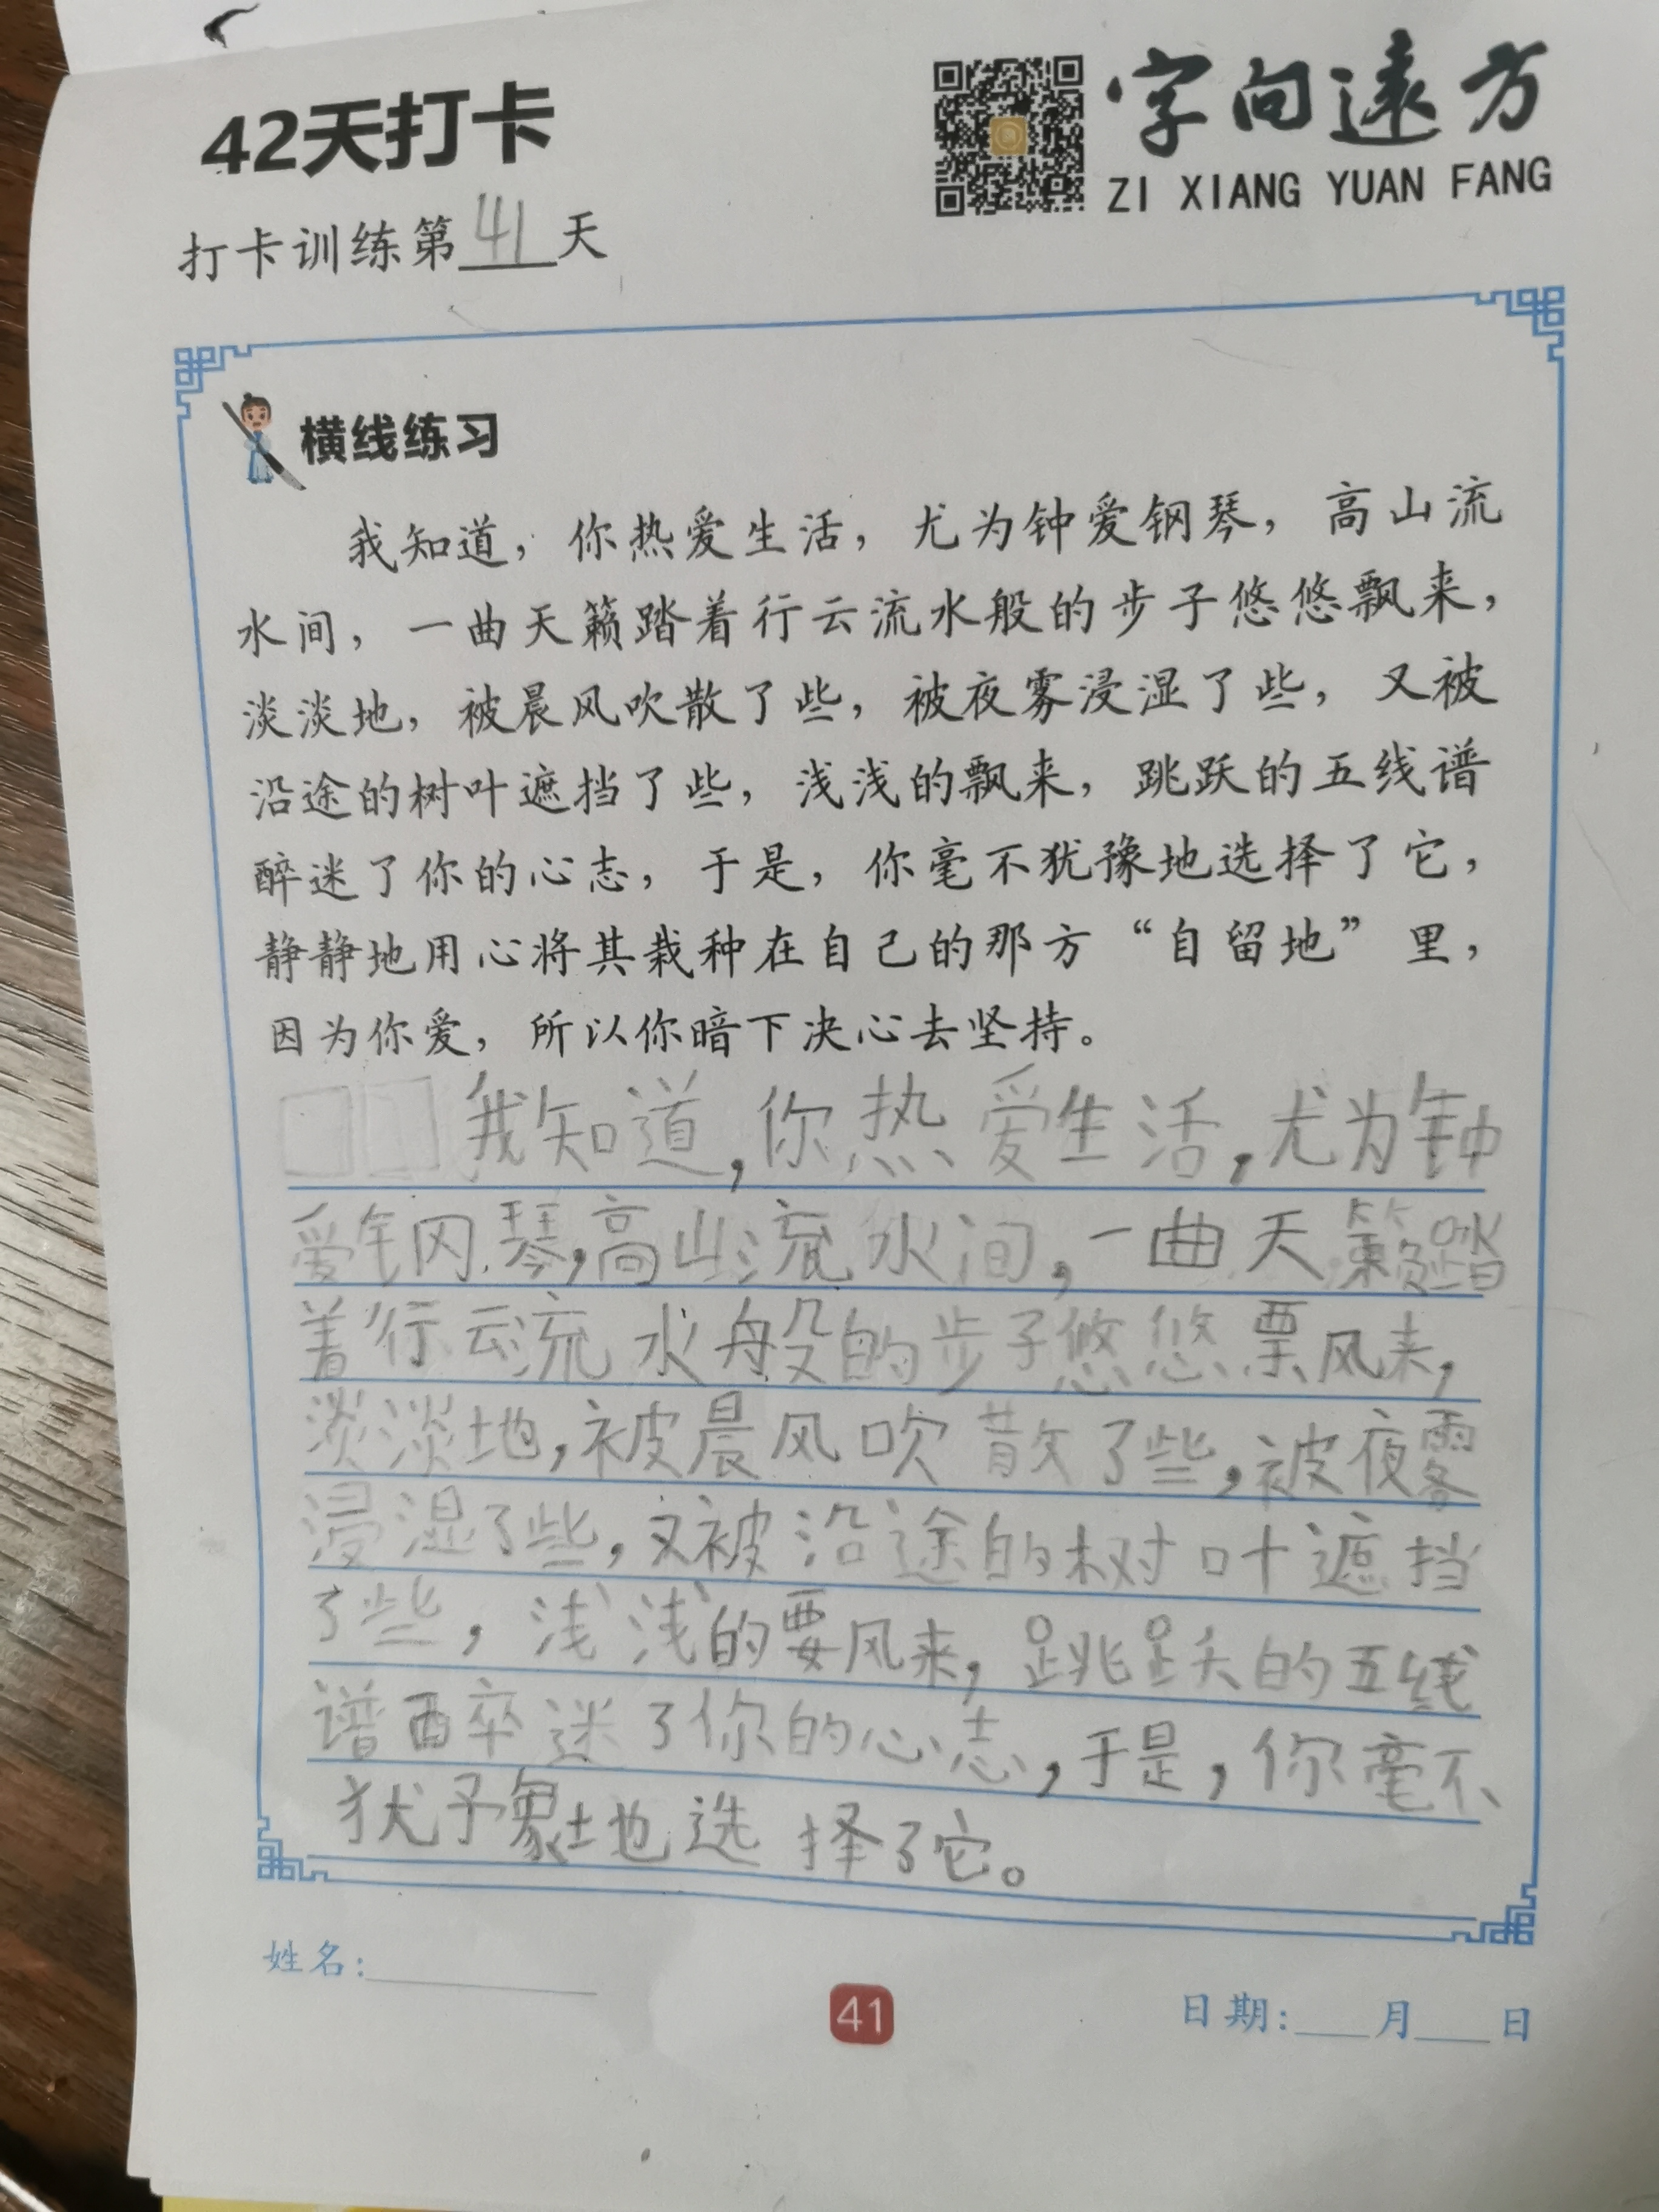 42天打卡
字向遠方
ZI XIANG YUAN FANG
打卡训练第41天
横线练习
我知道，你热爱生活，尤为钟爱钢琴，高山流
水间，一曲天籁踏着行云流水般的步子悠悠飘来，
淡淡地，被晨风吹散了些，被夜雾浸湿了些，又被
沿途的树叶遮挡了些，浅浅的飘来，跳跃的五线谱
醉迷了你的心志，于是，你毫不犹豫地选择了它，
静静地用心将其栽种在自己的那方“自留地”里，
因为你爱，所以你暗下决心去坚持。
我知道，你热爱生活，尤为钟
爱钢琴，高山流水间，一曲天籁踏
着行云流水般的步子悠悠飘来，
淡淡地，被晨风吹散了些，被夜雾
浸湿了些，又被沿途的树叶遮挡
了些，浅浅的飘来，跳跃的五线
谱醉迷了你的心志，于是，你毫不
犹豫地选择了它。
姓名：
41
日期：__月__日